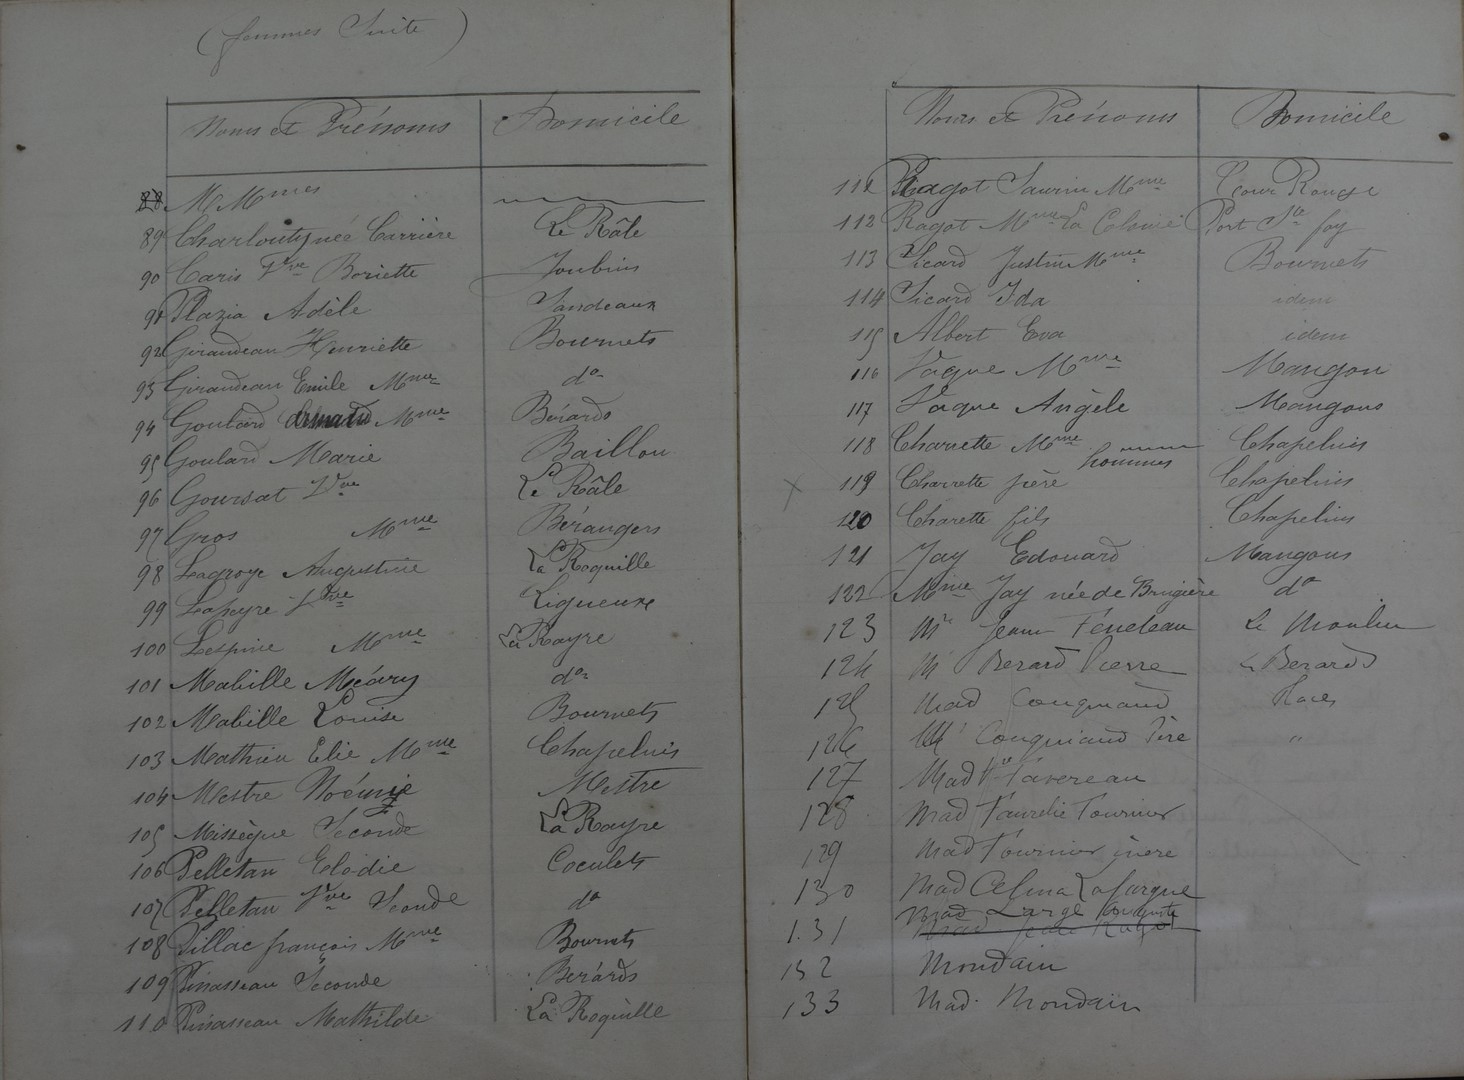 (femmes Suite)
Noms et Prénoms Domicile
88 M Mmes
89 Charloutynée Carrière Le Râle
90 Caris Vve Boriette Joubins
91 Plazia Adèle Sandeaux
92 Girandeau Henriette Bournets
93 Girandeau Emile Mme do
94 Goulard Armand Mme Bérards
95 Goulard Marie Baillou
96 Goursat Vve Le Râle
97 Gros Mme Bérangers
98 Lagroye Augustine La Roquille
99 Lapeyre Vve Ligueux
100 Lespine Mme La Rayre
101 Mabille Méary do
102 Mabille Louise Bournets
103 Mathieu Elie Mme Chapeluis
104 Mestre Noémie Mestre
105 Missèque Seconde La Rayre
106 Pelletan Elodie Coculets
107 Pelletan Vve Sconde do
108 Pillac françois Mme Bournets
109 Pinasseau Seconde Bérards
110 Pinasseau Mathilde La Roquille
Noms et Prénoms Domicile
111 Ragot Saurin Mme Cour Rouge
112 Ragot Mme La Colonie Port Ste foy
113 Sicard Justin Mme Bournets
114 Sicard Ida idem
115 Albert Eva idem
116 Vaque Mme Mangon
117 Vaque Angèle Mangons
118 Charrette Mme Chapeluis
hommes
119 Charrette père Chapeluis
120 Charette fils Chapeluis
121 Jay Edouard Mangons
122 Mme Jay née de Brugière do
123 Mr Jean Féneleau Le Moulin
124 Mr Berard Pierre Berards
125 Mad Couquiaud Places
126 Mr Couquiaud Père "
127 Mad Vve Favereau
128 Mad Faurelie Fournier
129 Mad Fournier mère
130 Mad Celina Lafargue
Mad Large Auguste
131 Mad Jean Ragot
132 Mondain
133 Mad. Mondain